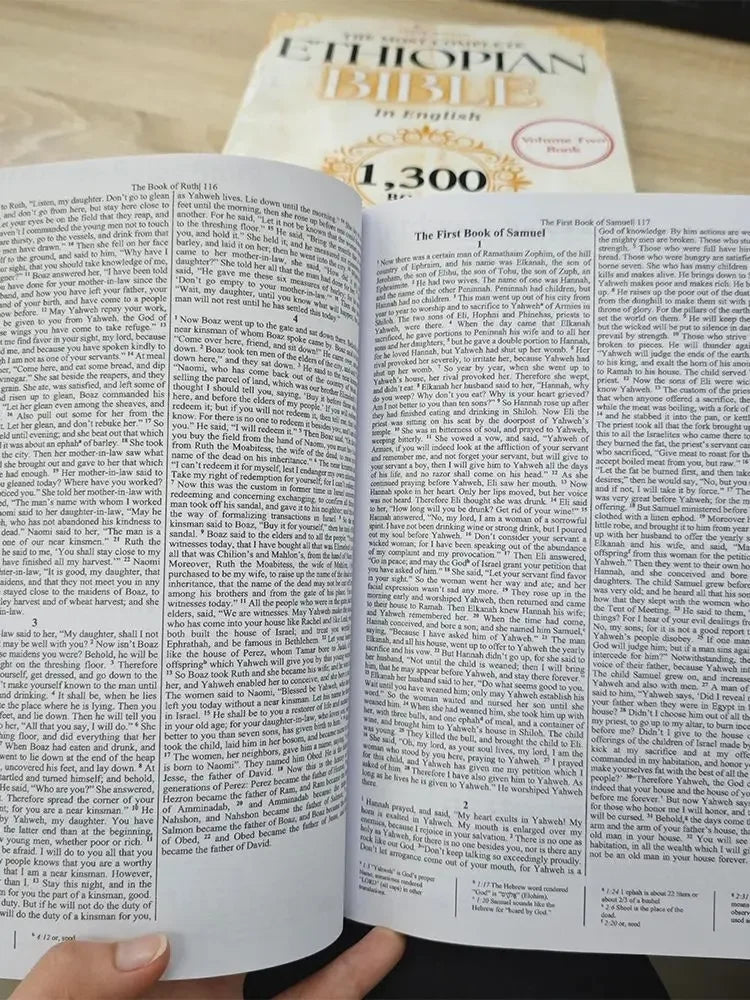 THE MOST COMPLETE
ETHIOPIAN
BIBLE
In English
Volume Two
Book
1,300
The Book of Ruth| 116
to Ruth, "Listen, my daughter. Don't go to glean
and don't go from here, but stay here close to
your eyes be on the field that they reap, and
I commanded the young men not to touch
are thirsty, go to the vessels, and drink from that
men have drawn." 10 Then she fell on her face
to the ground, and said to him, "Why have I
sight, that you should take knowledge of me,
11 Boaz answered her, "I have been told
have done for your mother-in-law since the
husband, and how you have left your father,
and of your birth, and have come to a people
before. 12 May Yahweh repay your work,
be given to you from Yahweh, the God of
wings you have come to take refuge."
me find favor in your sight, my lord, because
me, and because you have spoken kindly to
I am not as one of your servants." 14 At meal
"Come here, and eat some bread, and dip
vinegar." She sat beside the reapers, and they
grain. She ate, was satisfied, and left some of
risen up to glean, Boaz commanded his
"Let her glean even among the sheaves, and
Also pull out some for her from the
Let her glean, and don't rebuke her." 17 So
field until evening; and she beat out that which
it was about an ephah of barley. 18 She took
the city. Then her mother-in-law saw what
she brought out and gave to her that which
had enough. 19 Her mother-in-law said to
you gleaned today? Where have you worked?
noticed you." She told her mother-in-law with
"The man's name with whom I worked
daughter-in-law, "May he
who has not abandoned his kindness
dead." Naomi said to her, "The man is a
one of our near kinsmen." 21 Ruth the
he said to me, 'You shall stay close to my
have finished all my harvest.'" 22 Naomi
"It is good, my daughter, that
maidens, and that they not meet you in any
stayed close to the maidens of Boaz, to
barley harvest and of wheat harvest; and she
3
said to her, "My daughter, shall I not
may be well with you? 2 Now isn't Boaz
maidens you were? Behold, he will be
on the threshing floor. 3 Therefore
yourself, get dressed, and go down to the
make yourself known to the man until
and drinking. 4 It shall be, when he lies
the place where he is lying. Then you
feet, and lie down. Then he will tell you
to her, "All that you say, I will do." 6 She
floor, and did everything that her
When Boaz had eaten and drunk, and
went to lie down at the end of the heap
uncovered his feet, and lay down. 8 At
startled and turned himself; and behold,
He said, "Who are you?" She answered,
Therefore spread the corner of your
for you are a near kinsman." 10 He
by Yahweh, my daughter. You have
the latter end than at the beginning,
young men, whether poor or rich. 11
be afraid. I will do to you all that you
people knows that you are a worthy
that I am a near kinsman. However,
than I. 13 Stay this night, and in the
for you the part of a kinsman, good.
duty. But if he will not do the duty of
will do the duty of a kinsman for you,
4:12 or, seed
as Yahweh lives. Lie down until the morning."
feet until the morning, then she rose up before one could
another. For he said, "Let it not be known that the woman
to the threshing floor." 15 He said, "Bring the
you, and hold it." She held it; and he measured six
barley, and laid it on her; then he went into the
came to her mother-in-law, she said, "How did it
daughter?" She told her all that the man had done for her.
said, "He gave me these six measures of barley; for he
'Don't go empty to your mother-in-law.'"
"Wait, my daughter, until you know what will
man will not rest until he has settled this today."
4
1 Now Boaz went up to the gate and sat down there.
near kinsman of whom Boaz spoke came by. Boaz
"Come over here, friend, and sit down!" He came
down. 2 Boaz took ten men of the elders of the city, and
down here," and they sat down. 3 He said to the
"Naomi, who has come back out of the country of
selling the parcel of land, which was our brother
thought I should tell you, saying, 'Buy it before
here, and before the elders of my people.' If you will
redeem it; but if you will not redeem it, then tell me,
know. For there is no one to redeem it besides you; and
you." He said, "I will redeem it." 5 Then Boaz said, "On
you buy the field from the hand of Naomi, you must
Ruth the Moabitess, the wife of the dead, to raise
name of the dead on his inheritance." 6 The near kinsman
"I can't redeem it for myself, lest I endanger my own
Take my right of redemption for yourself; for I
7 Now this was the custom in former time in Israel
redeeming and concerning exchanging, to confirm all
man took off his sandal, and gave it to his neighbor; and
the way of formalizing transactions in Israel. 8 So the
kinsman said to Boaz, "Buy it for yourself," then he
sandal. 9 Boaz said to the elders and to all the people,
witnesses today, that I have bought all that was Elimelech's,
all that was Chilion's and Mahlon's, from the hand of
Moreover, Ruth the Moabitess, the wife of Mahlon, I
purchased to be my wife, to raise up the name of the dead
inheritance, that the name of the dead may not be cut off
among his brothers and from the gate of his place.
witnesses today." 11 All the people who were in the gate,
elders, said, "We are witnesses. May Yahweh make
who has come into your house like Rachel and like Leah,
both built the house of Israel; and treat you
Ephrathah, and be famous in Bethlehem. 12 Let your
like the house of Perez, whom Tamar bore to Judah,
offspring which Yahweh will give you by this young
13 So Boaz took Ruth and she became his wife; and he
her, and Yahweh enabled her to conceive, and she bore
The women said to Naomi, "Blessed be Yahweh, who
left you today without a near kinsman. Let his name
in Israel. 15 He shall be to you a restorer of life and
in your old age; for your daughter-in-law, who loves
better to you than seven sons, has given birth to him."
took the child, laid him in her bosom, and became
17 The women, her neighbors, gave him a name, saying
is born to Naomi". They named him Obed. He is the
Jesse, the father of David. 18 Now this is the
generations of Perez: Perez became the father of
Hezron became the father of Ram, and Ram became the
of Amminadab, 20 and Amminadab became the father of
Nahshon, and Nahshon became the father of Salmon,
Salmon became the father of Boaz, and Boaz became the
of Obed, 22 and Obed became the father of Jesse,
became the father of David.
The First Book of Samuel| 117
The First Book of Samuel
1
1 Now there was a certain man of Ramathaim Zophim, of the hill
country of Ephraim, and his name was Elkanah, the son of
Jeroham, the son of Elihu, the son of Tohu, the son of Zuph, an
Ephraimite. 2 He had two wives. The name of one was Hannah,
and the name of the other Peninnah. Peninnah had children, but
Hannah had no children. 3 This man went up out of his city from
year to year to worship and to sacrifice to Yahweh of Armies in
Shiloh. The two sons of Eli, Hophni and Phinehas, priests to
Yahweh, were there. 4 When the day came that Elkanah
sacrificed, he gave portions to Peninnah his wife and to all her
sons and her daughters; 5 but he gave a double portion to Hannah,
for he loved Hannah, but Yahweh had shut up her womb. 6 Her
rival provoked her severely, to irritate her, because Yahweh had
shut up her womb. 7 So year by year, when she went up to
Yahweh's house, her rival provoked her. Therefore she wept,
and didn't eat. 8 Elkanah her husband said to her, "Hannah, why
do you weep? Why don't you eat? Why is your heart grieved?
Am I not better to you than ten sons?" 9 So Hannah rose up after
they had finished eating and drinking in Shiloh. Now Eli the
priest was sitting on his seat by the doorpost of Yahweh's
temple. 10 She was in bitterness of soul, and prayed to Yahweh,
weeping bitterly. 11 She vowed a vow, and said, "Yahweh of
Armies, if you will indeed look at the affliction of your servant
and remember me, and not forget your servant, but will give to
your servant a boy, then I will give him to Yahweh all the days
of his life, and no razor shall come on his head." 12 As she
continued praying before Yahweh, Eli saw her mouth. 13 Now
Hannah spoke in her heart. Only her lips moved, but her voice
was not heard. Therefore Eli thought she was drunk. 14 Eli said
to her, "How long will you be drunk? Get rid of your wine!" 15
Hannah answered, "No, my lord, I am a woman of a sorrowful
spirit. I have not been drinking wine or strong drink, but I poured
out my soul before Yahweh. 16 Don't consider your servant a
wicked woman; for I have been speaking out of the abundance
of my complaint and my provocation." 17 Then Eli answered,
"Go in peace; and may the God of Israel grant your petition that
you have asked of him." 18 She said, "Let your servant find favor
in your sight." So the woman went her way and ate; and her
facial expression wasn't sad any more. 19 They rose up in the
morning early and worshiped Yahweh, then returned and came
to their house to Ramah. Then Elkanah knew Hannah his wife;
and Yahweh remembered her. 20 When the time had come,
Hannah conceived, and bore a son; and she named him Samuel,
saying, "Because I have asked him of Yahweh." 21 The man
Elkanah, and all his house, went up to offer to Yahweh the yearly
sacrifice and his vow. 22 But Hannah didn't go up, for she said to
her husband, "Not until the child is weaned; then I will bring
him, that he may appear before Yahweh, and stay there forever."
23 Elkanah her husband said to her, "Do what seems good to you.
Wait until you have weaned him; only may Yahweh establish his
word." So the woman waited and nursed her son until she
weaned him. 24 When she had weaned him, she took him up with
her, with three bulls, and one ephah of meal, and a container of
wine, and brought him to Yahweh's house in Shiloh. The child
was young. 25 They killed the bull, and brought the child to Eli.
26 She said, "Oh, my lord, as your soul lives, my lord, I am the
woman who stood by you here, praying to Yahweh. 27 I prayed
for this child, and Yahweh has given me my petition which I
asked of him. 28 Therefore I have also given him to Yahweh. As
long as he lives he is given to Yahweh." He worshiped Yahweh
there.
2
1 Hannah prayed, and said, "My heart exults in Yahweh! My
horn is exalted in Yahweh. My mouth is enlarged over my
enemies, because I rejoice in your salvation. 2 There is no one as
holy as Yahweh, for there is no one besides you, nor is there any
rock like our God. 3 "Don't keep talking so exceedingly proudly.
Don't let arrogance come out of your mouth, for Yahweh is a
1:3 "Yahweh" is God's proper
Name, sometimes rendered
"LORD" (all caps) in other
translations.
1:17 The Hebrew word rendered
"God" is "אֱלֹהִ֑ים" (Elohim).
1:20 Samuel sounds like the
Hebrew for "heard by God."
God of knowledge. By him actions are
the mighty men are broken. Those who
strength. 5 Those who were full have
bread. Those who were hungry are satisfied.
borne seven. She who has many children
kills and makes alive. He brings down to
Yahweh makes poor and makes rich. He
up. 8 He raises up the poor out of the dust.
from the dunghill to make them sit with
throne of glory. For the pillars of the earth
set the world on them. 9 He will keep the
but the wicked will be put to silence in
prevail by strength. 10 Those who strive
broken to pieces. He will thunder against
"Yahweh will judge the ends of the earth.
to his king, and exalt the horn of his anointed."
to Ramah to his house. The child served
priest. 12 Now the sons of Eli were wicked
know Yahweh. 13 The custom of the priests
that when anyone offered a sacrifice, the
while the meat was boiling, with a fork
14 and he stabbed it into the pan, or kettle,
The priest took all that the fork brought up
this to all the Israelites who came there
they burned the fat, the priest's servant came,
who sacrificed, "Give meat to roast for the
accept boiled meat from you, but raw." 16
"Let the fat be burned first, and then take
desires;" then he would say, "No, but you
and if not, I will take it by force." 17
was very great before Yahweh; for the
offering. 18 But Samuel ministered before
clothed with a linen ephod. 19 Moreover
little robe, and brought it to him from year
up with her husband to offer the yearly
Elkanah and his wife, and said, "May
offspring from this woman for the petition
Yahweh." Then they went to their own home.
Hannah, and she conceived and bore
daughters. The child Samuel grew before
was very old; and he heard all that his sons
how that they slept with the women who
the Tent of Meeting. 23 He said to them,
things? For I hear of your evil dealings from
No, my sons; for it is not a good report
Yahweh's people disobey. 25 If one man
God will judge him; but if a man sins against
intercede for him?" Notwithstanding,
voice of their father, because Yahweh
The child Samuel grew on, and increased
Yahweh and also with men. 27 A man of
said to him, "Yahweh says, 'Did I reveal
your father when they were in Egypt in
house? 28 Didn't I choose him out of all
my priest, to go up to my altar, to burn incense,
before me? Didn't I give to the house of
offerings of the children of Israel made
kick at my sacrifice and at my offering,
commanded in my habitation, and honor
make yourselves fat with the best of all the
people?' 30 "Therefore Yahweh, the God of
indeed that your house and the house of your
before me forever.' But now Yahweh says
for those who honor me I will honor, and
will be cursed. 31 Behold, the days come
arm and the arm of your father's house,
old man in your house. 32 You will see
habitation, in all the wealth which I will give
not be an old man in your house forever.
1:24 1 ephah is about 22 liters or
about 2/3 of a bushel
2:6 Sheol is the place of the
dead.
2:20 or, seed
2:31